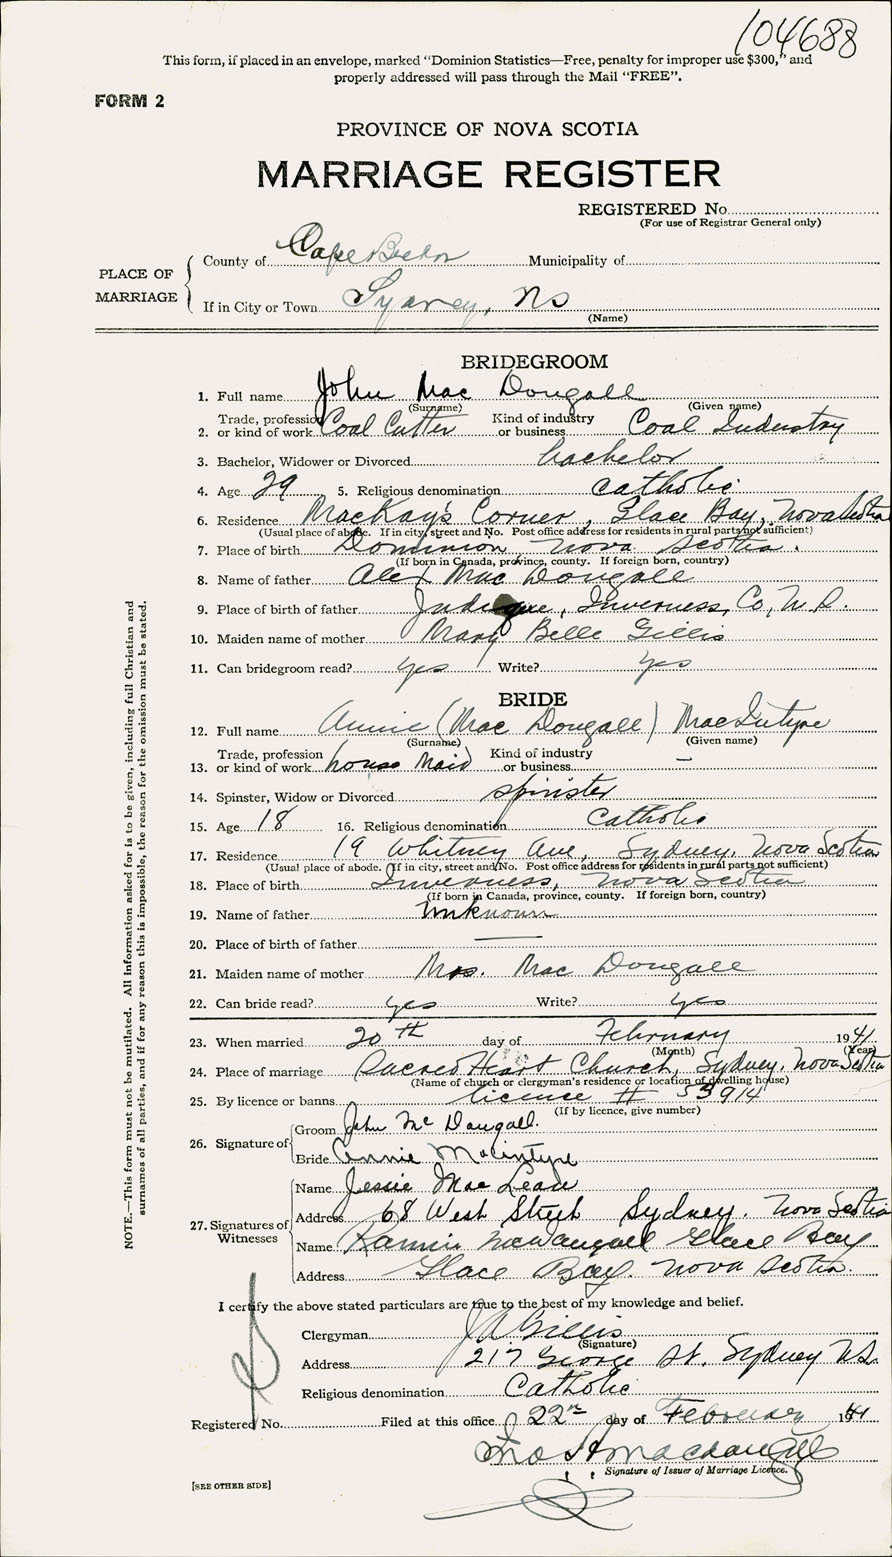 104688
This form, if placed in an envelope, marked "Dominion Statistics—Free, penalty for improper use $300," and
properly addressed will pass through the Mail "FREE".
FORM 2
PROVINCE OF NOVA SCOTIA
MARRIAGE REGISTER
REGISTERED No.
(For use of Registrar General only)
PLACE OF MARRIAGE
County of Cape Breton Municipality of
If in City or Town Sydney, NS
(Name)
BRIDEGROOM
1. Full name John Mac Dougall
(Surname) (Given name)
2. Trade, profession or kind of work Coal Cutter Kind of industry or business Coal Industry
3. Bachelor, Widower or Divorced bachelor
4. Age 29 5. Religious denomination catholic
6. Residence MacKay's Corner, Glace Bay, Nova Scotia
(Usual place of abode. If in city, street and No. Post office address for residents in rural parts not sufficient)
7. Place of birth Dominion, Nova Scotia.
(If born in Canada, province, county. If foreign born, country)
8. Name of father Alex Mac Dougall
9. Place of birth of father Judique, Inverness, Co, N.S.
10. Maiden name of mother Mary Belle Gillis
11. Can bridegroom read? yes Write? yes
BRIDE
12. Full name Annie (Mac Dougall) MacIntyre
(Surname) (Given name)
13. Trade, profession or kind of work house maid Kind of industry or business —
14. Spinster, Widow or Divorced spinster
15. Age 18 16. Religious denomination Catholic
17. Residence 19 Whitney Ave, Sydney, Nova Scotia
(Usual place of abode. If in city, street and No. Post office address for residents in rural parts not sufficient)
18. Place of birth Inverness, Nova Scotia
(If born in Canada, province, county. If foreign born, country)
19. Name of father unknown
20. Place of birth of father —
21. Maiden name of mother Mrs. Mac Dougall
22. Can bride read? yes Write? yes
23. When married 20th day of February 1941
(Month) (Year)
24. Place of marriage Sacred Heart Church, Sydney, Nova Scotia
(Name of church or clergyman's residence or location of dwelling house)
25. By licence or banns licence # 53914
(If by licence, give number)
26. Signature of
Groom John Mc Dougall.
Bride Annie Macintyre
27. Signatures of Witnesses
Name Jessie Mac Lean
Address 68 West Street Sydney. Nova Scotia
Name Glace Bay
Address Glace Bay. Nova Scotia.
I certify the above stated particulars are true to the best of my knowledge and belief.
Clergyman J A Gillis
(Signature)
Address 217 George St. Sydney N.S.
Religious denomination Catholic
Registered No. Filed at this office 22nd day of February 1941
Signature of Issuer of Marriage Licence.
[SEE OTHER SIDE]
NOTE.—This form must not be mutilated. All information asked for is to be given, including full Christian and
surnames of all parties, and if for any reason this is impossible, the reason for the omission must be stated.